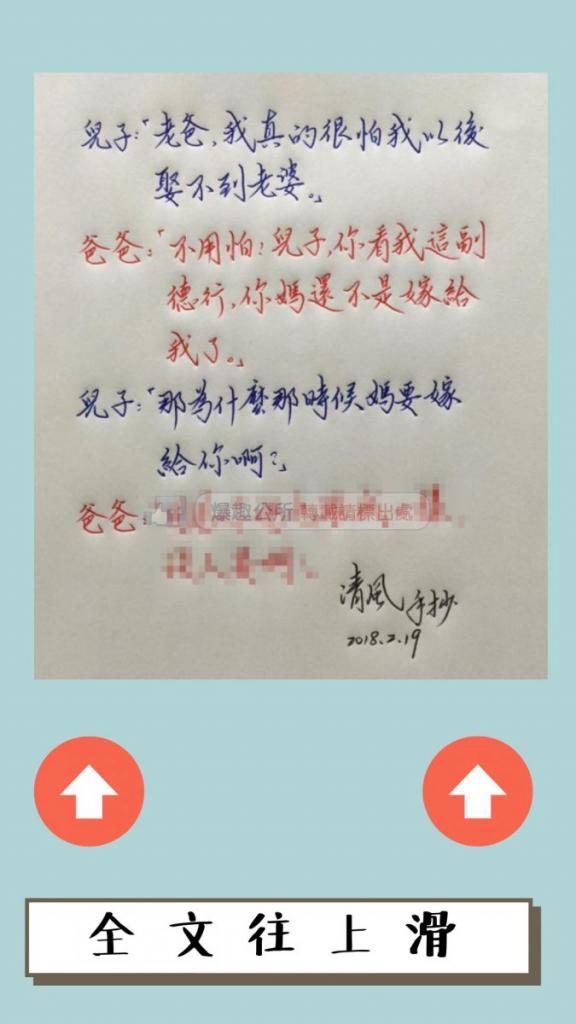 兒子:「老爸,我真的很怕我以後
娶不到老婆。」
爸爸:「不用怕!兒子,你看我這副
德行,你媽還不是嫁給
我了。」
兒子:「那為什麼那時候媽要嫁
給你啊?」
爸爸:
爆趣公所 轉載請標出處
清風手抄
2018.2.19
全文往上滑